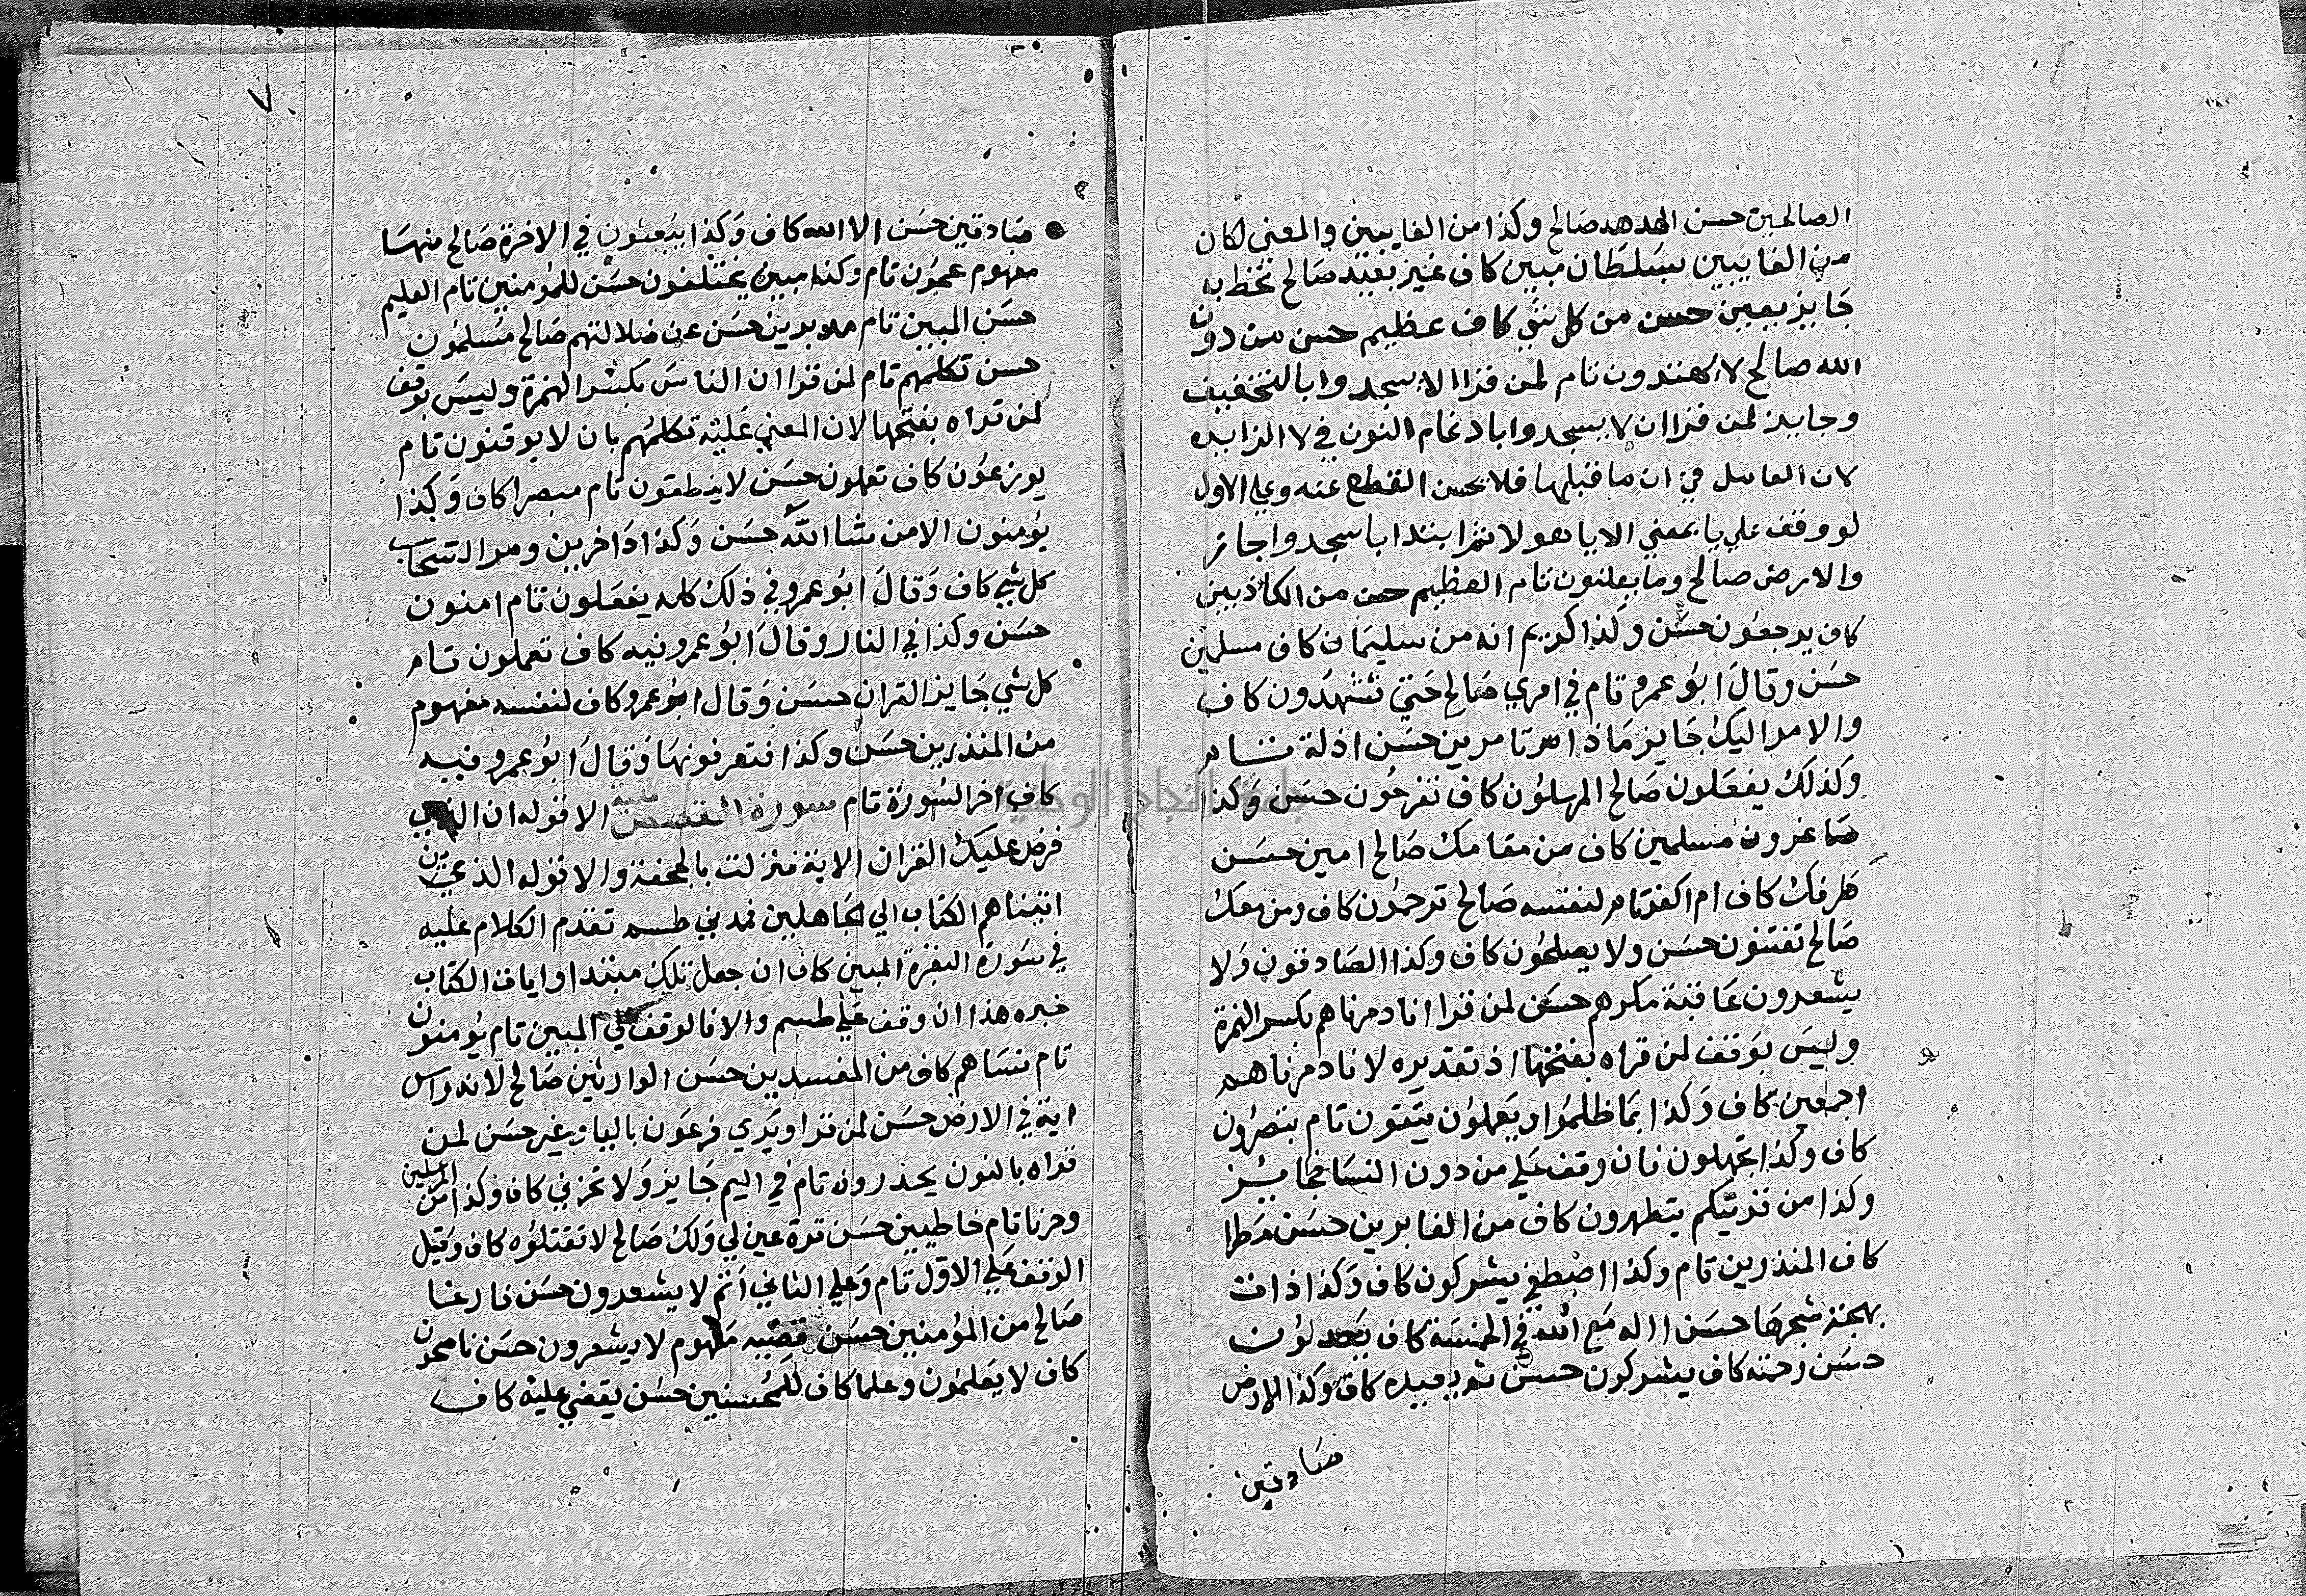 الصالحين حسن الهدهد صالح وكذا من الغايبين والمعني لكان
من الغايبين بسلطان مبين كاف غير بعيد صالح تحط به
جايز بيقين حسن من كل شي كاف عظيم حسن من دون
الله صالح لا يهتدون تام لمن قرا الا يسجدوا بالتخفيف
وجايز لمن قرا ان لا يسجدوا بادغام النون في لا الزايده
لان العامل في ان ما قبلها فلا يحسن القطع عنه وعلي الاول
لو وقف علي يا بمعني الا يا هولا ثم ابتدا باسجدوا جاز
والارض صالح وما يعلنون تام العظيم حسن من الكاذبين
كاف يرجعون حسن وكذا كريم انه من سليمان كاف مسلمين
حسن وقال ابو عمرو تام في امري صالح حتي تشهدون كاف
والامر اليك جايز ماذا تامرين حسن اذلة تام
وكذلك يفعلون صالح المرسلون كاف تفرحون حسن وكذا
صاغرون مسلمين كاف من مقامك صالح امين حسن
طرفك كاف ام اكفر تام لنفسه صالح ترحمون كاف ومن معك
صالح تفتنون حسن ولا يصلحون كاف وكذا الصادقون ولا
يشعرون عاقبة مكرهم حسن لمن قرا انا دمرناهم بكسر الهمزة
وليس بوقف لمن قراه بفتحها اذ تقديره لانا دمرناهم
اجمعين كاف وكذا بما ظلموا ويعلمون يتقون تام تبصرون
كاف وكذا تجهلون فان وقف علي من دون النسا فجايز
وكذا من قريتكم يتطهرون كاف من الغابرين حسن مطرا
كاف المنذرين تام وكذا اصطفي يشركون كاف وكذا ذات
بهجة شجرها حسن االه مع الله في الخمسة كاف يعدلون
حسن رحمته كاف يشركون حسن ثم يعيده كاف وكذا الارض
صادقين
صادقين حسن الا الله كاف وكذا يبعثون في الاخرة صالح منها
مفهوم عمون تام وكذا مبين يختلفون حسن للمومنين تام العليم
حسن المبين تام مدبرين حسن عن ضلالتهم صالح مسلمون
حسن تكلمهم تام لمن قرا ان الناس بكسر الهمزة وليس بوقف
لمن قراه بفتحها لان المعني عليه تكلمهم بان لا يوقنون تام
يوزعون كاف تعملون حسن لا ينطقون تام مبصرا كاف وكذا
يومنون الا من شا الله حسن وكذا داخرين ومر السحاب
كل شي كاف وقال ابو عمرو في ذلك كله يفعلون تام امنون
حسن وكذا في النار وقال ابو عمرو فيه كاف تعملون تام
كل شي جايز القران حسن وقال ابو عمرو كاف لنفسه مفهوم
من المنذرين حسن وكذا فتعرفونها وقال ابو عمرو فيه
كاف اخر السورة تام سورة القصص مكية الا قوله ان الذي
فرض عليك القران الاية فنزلت بالجحفة والا قوله الذين
اتيناهم الكتاب الي الجاهلين فمدني طسم تقدم الكلام عليه
في سورة البقرة المبين كاف ان جعل تلك مبتدا وايات الكتاب
خبره هذا ان وقف علي طسم والا فالوقف علي المبين تام يومنون
تام نساهم كاف من المفسدين حسن الوارثين صالح لانه راس
اية في الارض حسن لمن قرا ويري فرعون باليا وغير حسن لمن
قراه بالنون يحذرون تام في اليم جايز ولا تحزني كاف وكذا من المرسلين
وحزنا تام خاطيين حسن قرة عين لي ولك صالح لا تقتلوه كاف وقيل
الوقف علي الاول تام وعلي الثاني اتم لا يشعرون حسن فارغا
صالح من المؤمنين حسن قصيه مفهوم لا يشعرون حسن ناصحون
كاف لا يعلمون وعلما كاف للمحسنين حسن يقضي عليه كاف
جامعة النجاح الوطنية